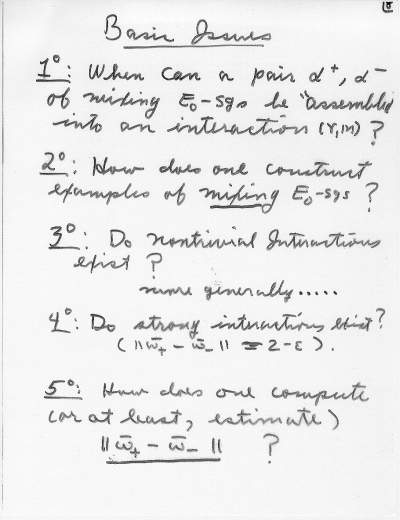 8
Basic Issues
1°: When can a pair α⁺, α⁻
of mixing E₀-sgs be "assembled
into an interaction (γ, M) ?
2°: How does one construct
examples of mixing E₀-sgs ?
3°: Do nontrivial Interactions
exist ?
more generally.....
4°: Do strong interactions exist?
( ‖ω̄₊ - ω̄₋‖ = 2-ε ).
5°: How does one compute
(or at least, estimate)
‖ω̄₊ - ω̄₋‖ ?